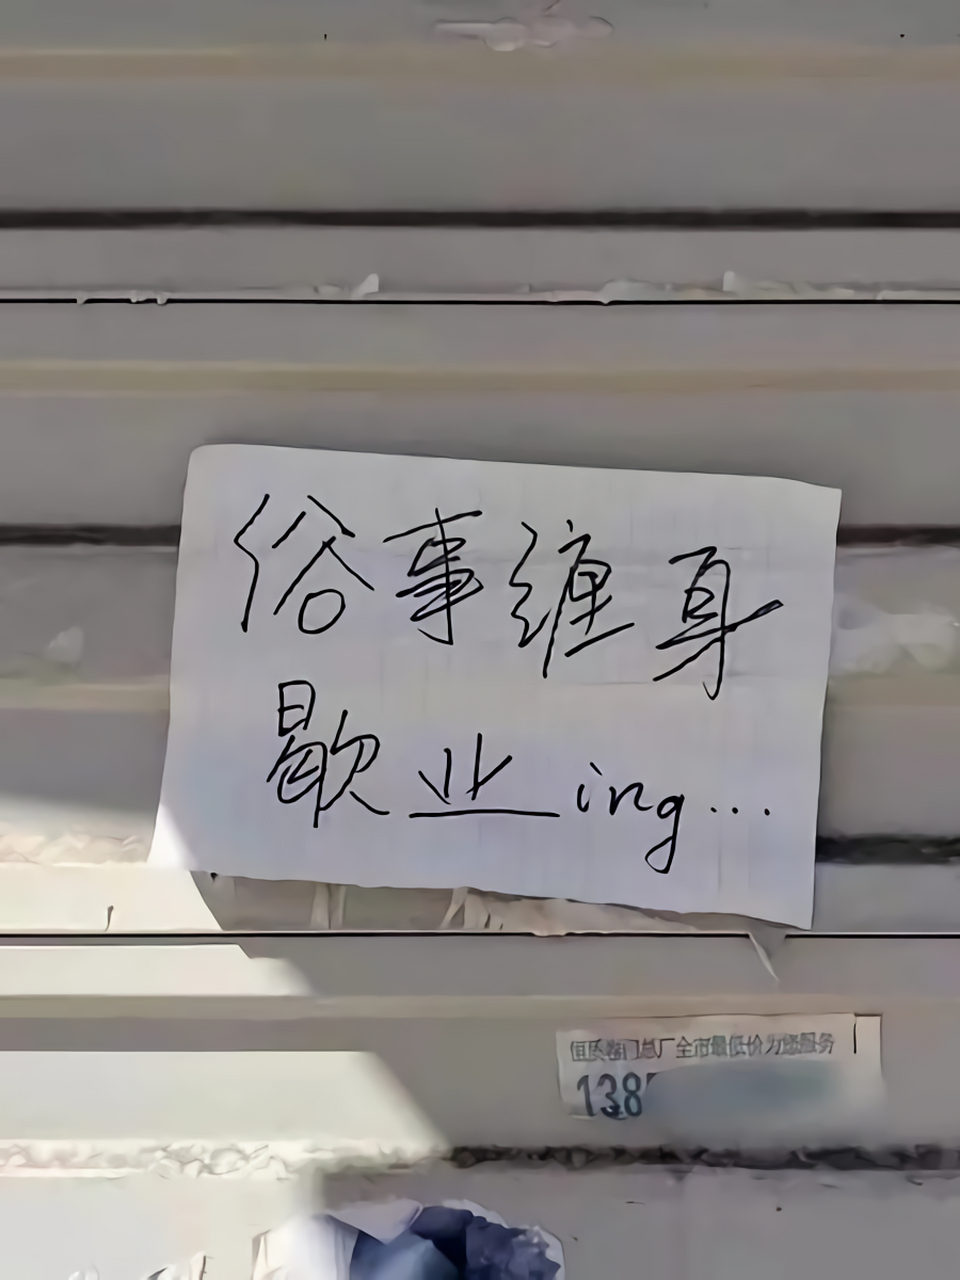 俗事缠身
歇业ing...
恒质卷门总厂全市最低价为您服务
138